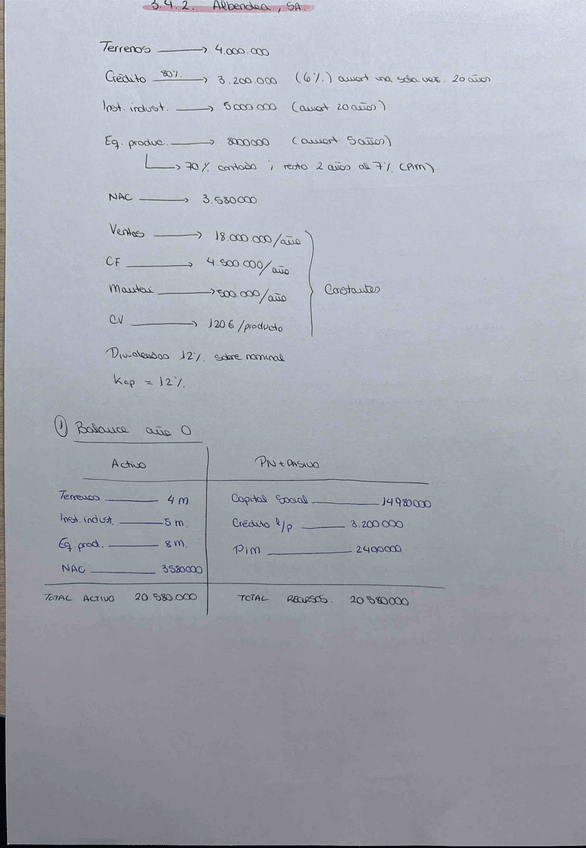 3.4.2. Albendea, SA.
Terrenos → 4.000.000
Crédito 80% → 3.200.000 (6%) amort una sola vez. 20 años
Inst. indust. → 5000000 (amort 20 años)
Eq. produc. → 8000000 (amort 5 años)
→ 70% contado ; resto 2 años al 7% (PIM)
NAC → 3.580000
Ventas → 18.000 000/año
CF → 4.500 000/año
Manten. → 500.000/año
Constantes
CV → 120€/producto
Dividendos 12% sobre nominal
Kep = 12%
① Balance año 0
Activo PN + PASIVO
Terrenos 4 m Capital Social 14980000
Inst. indust. 5 m. Crédito l/p 3.200000
Eq. prod. 8 m. PIM 2400000
NAC 3580000
TOTAL ACTIVO 20.580.000 TOTAL RECURSOS. 20 580000